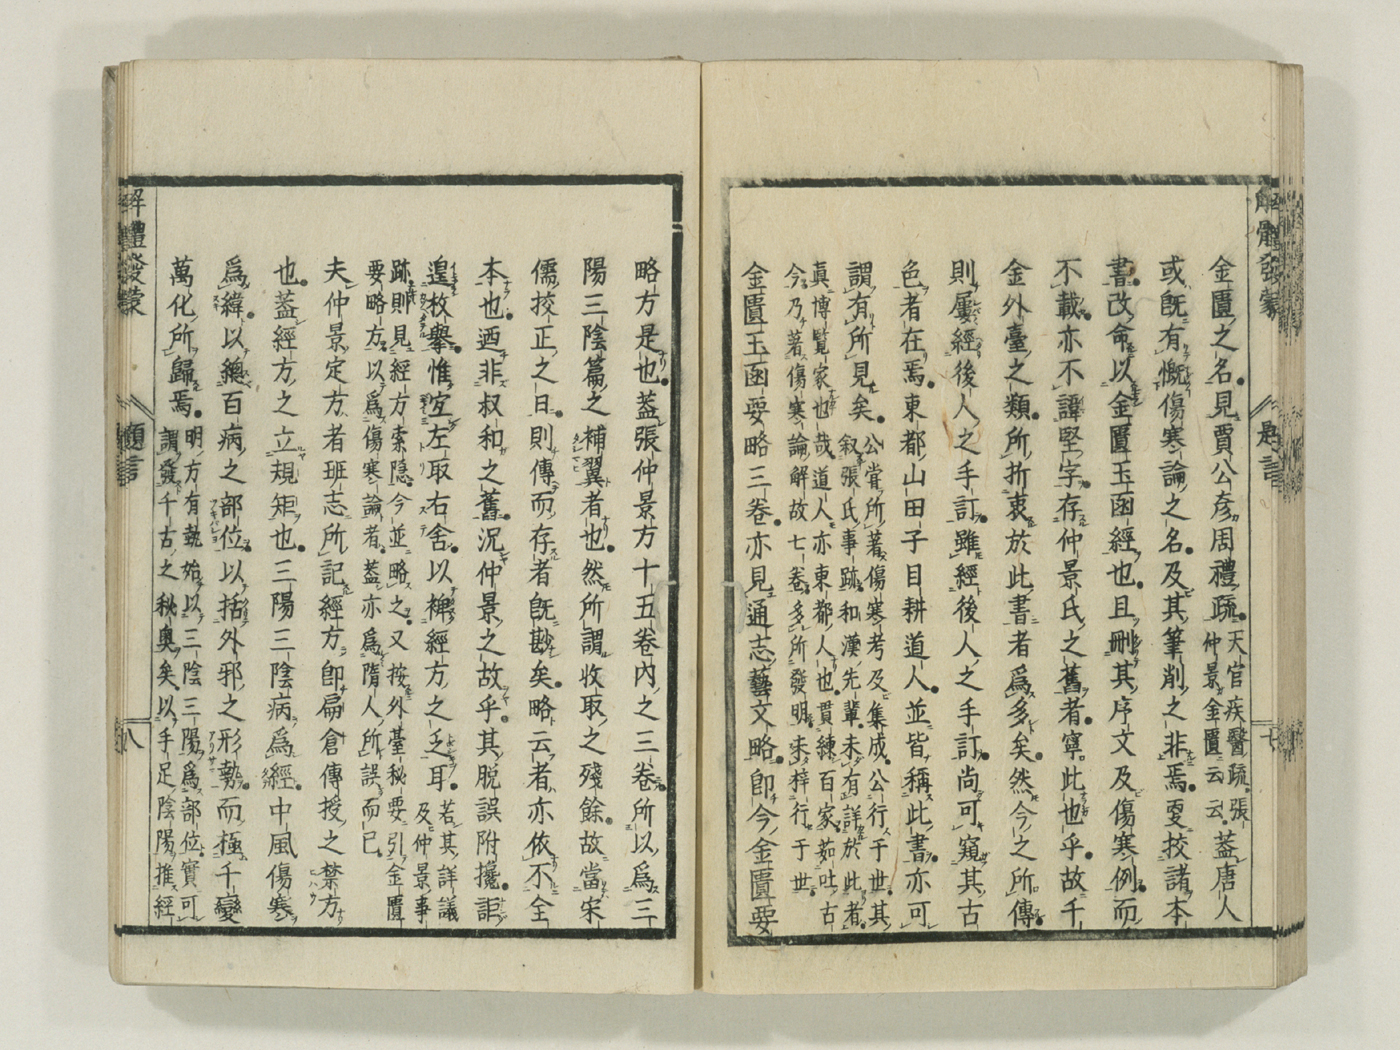 金匱之名見賈公彥周禮疏天官疾醫疏張仲景金匱云云蓋唐人
或既有慨傷寒論之名及其筆削之非焉更挍諸本
書改命以金匱玉函經也且刪其序文及傷寒例而
不載亦不譚堅字存仲景氏之舊者寧此也乎故千
金外臺之類所折衷於此書者為多矣然今之所傳
則屢經後人之手訂雖經後人之手訂尚可窺其古
色者在焉東都山田子目耕道人並皆稱此書亦可
謂有所見矣公嘗所著傷寒考及集成公行于世其
叙張氏事跡和漢先輩未有詳於此者
真博覽家也哉道人亦東都人也貫練百家茹吐古
今乃著傷寒論解故七卷多所發明未梓行于世
金匱玉函要略三卷亦見通志藝文略即今金匱要
略方是也蓋張仲景方十五卷內之三卷所以為三
陽三陰篇之補翼者也然所謂收取之殘餘故當宋
儒挍正之日則傳而存者旣尠矣略云者亦依不全
本也迺非叔和之舊況仲景之故乎其脫誤附攙詎
遑枚舉惟宜左取右舍以裨經方之乏耳若其詳議
及仲景事
跡則見經方索隱今並略之又按外臺秘要引金匱
要略方以為傷寒論者蓋亦為隋人所誤而已
夫仲景定方者班志所記經方即扁倉傳授之禁方
也蓋經方之立規矩也三陽三陰病為經中風傷寒
為緯以緫百病之部位以括外邪之形勢而極千變
萬化所歸焉明方有執始以三陰三陽為部位實可
謂發千古之秘奧矣以手足陰陽推經
解體發蒙
題言
八
解體發蒙
題言
七